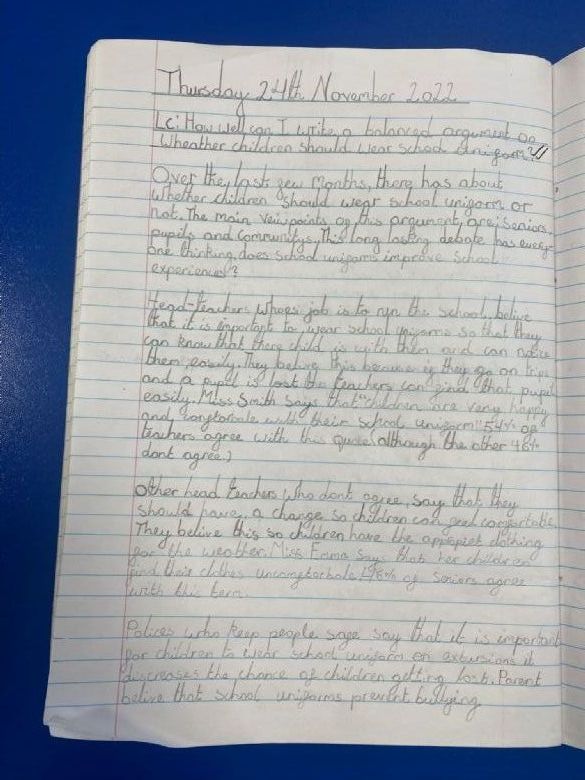 Thursday 24th November 2022
Lc: How well can I write a balanced argument on
wheather children should wear school unigorm?
Over the last gew months, there has about
whether children should wear school unigorm or
not. The main veiwpoints og this argument are: seniors,
pupils and communitys. This long lasting debate has every-
one thinking, does school unigorm improve school
experiences?
Head-teachers whoes job is to run the school, belive
that it is important to wear school unigorm so that they
can know that there child is with them and can notice
them easily. They belive this because ig they go on trips
and a pupil is lost the teachers can gind that pupil
easily. Miss Smith says that "children are very happy
and congtorbale with their school unigorm" 54% og
teachers agree with this quote(although the other 46%
dont agree.)
Other head teachers who dont agree, say that they
should have a change so children can geel comgortable.
They belive this so children have the clothing
gor the weather. Miss Emma says that her children
gind their clothes uncomgtorbale. 48% og seniors agree
with this term.
Polices who keep people sage say that it is important
gor children to wear school unigorm on extursions it
discreases the chance og children getting lost. Parent
belive that school unigorms prevent bullying